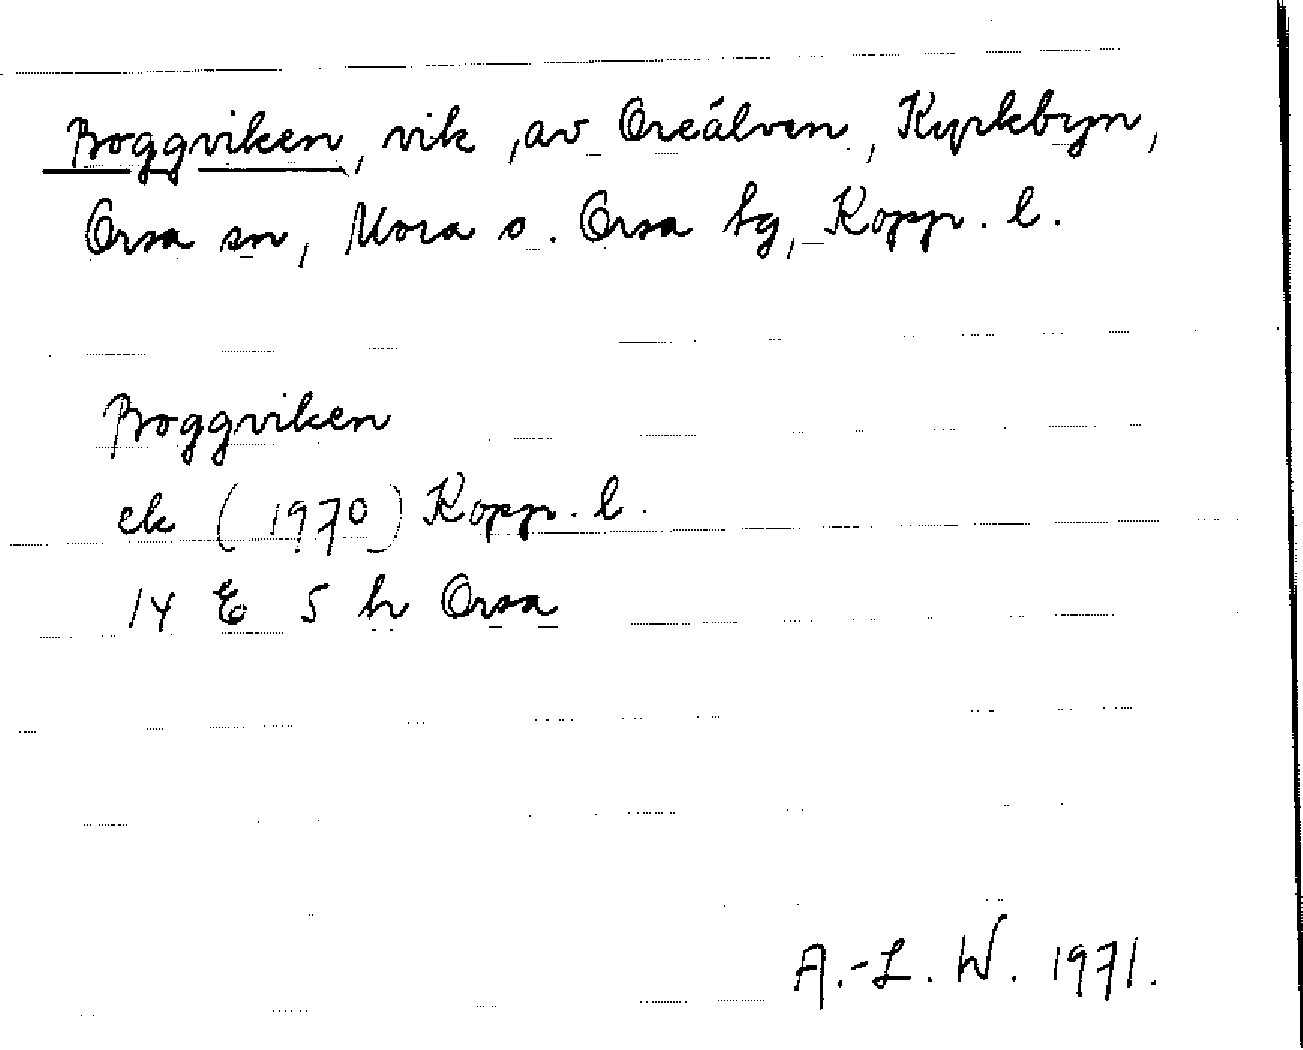 Boggviken, vik, av Oreälven, Kyrkbyn,
Orsa sn, Mora o. Orsa tg, Kopp. l.
Boggviken
ek (1970) Kopp. l.
14 E 5 h Orsa
A.-L. W. 1971.